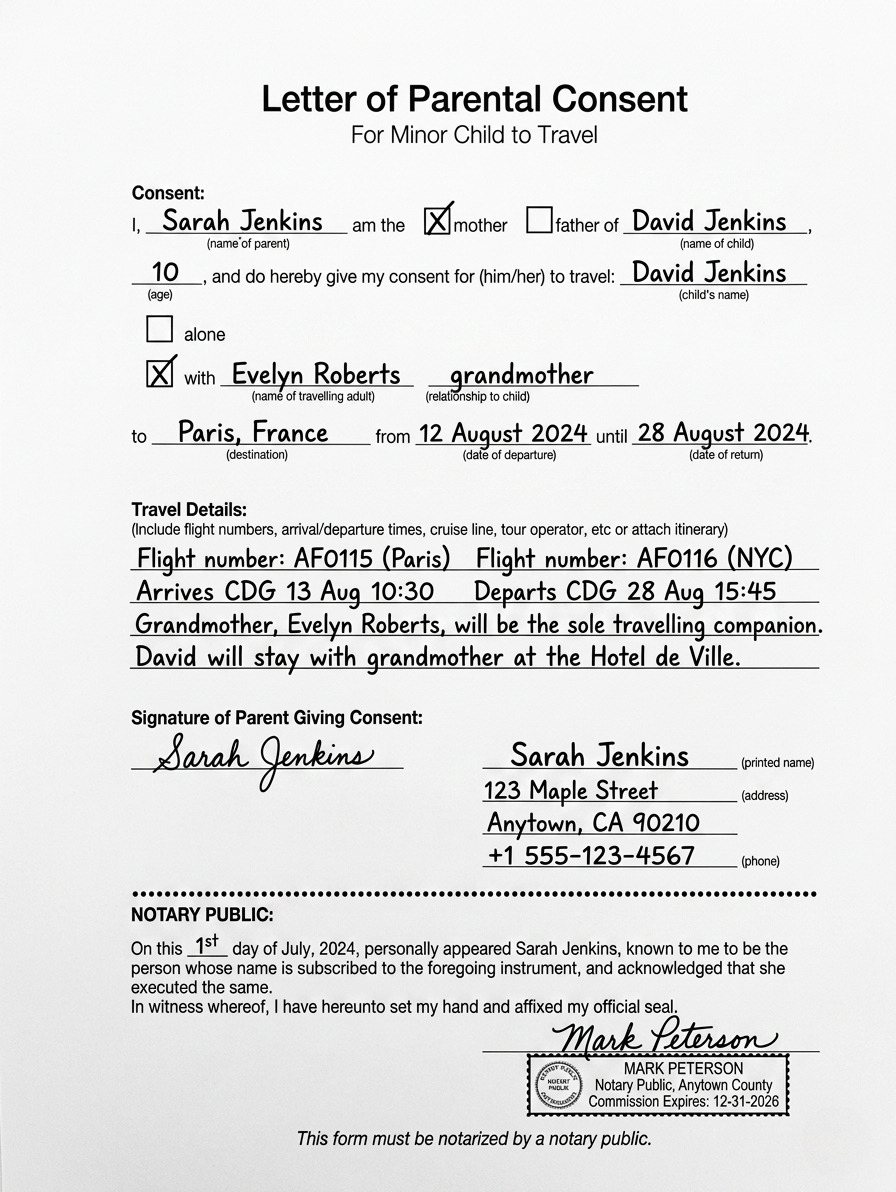 Letter of Parental Consent
For Minor Child to Travel
Consent:
I, Sarah Jenkins am the ☒ mother ☐ father of David Jenkins,
(name of parent) (name of child)
10, and do hereby give my consent for (him/her) to travel: David Jenkins
(age) (child's name)
☐ alone
☒ with Evelyn Roberts grandmother
(name of travelling adult) (relationship to child)
to Paris, France from 12 August 2024 until 28 August 2024.
(destination) (date of departure) (date of return)
Travel Details:
(Include flight numbers, arrival/departure times, cruise line, tour operator, etc or attach itinerary)
Flight number: AF0115 (Paris) Flight number: AF0116 (NYC)
Arrives CDG 13 Aug 10:30 Departs CDG 28 Aug 15:45
Grandmother, Evelyn Roberts, will be the sole travelling companion.
David will stay with grandmother at the Hotel de Ville.
Signature of Parent Giving Consent:
Sarah Jenkins Sarah Jenkins (printed name)
123 Maple Street (address)
Anytown, CA 90210
+1 555-123-4567 (phone)
NOTARY PUBLIC:
On this 1st day of July, 2024, personally appeared Sarah Jenkins, known to me to be the
person whose name is subscribed to the foregoing instrument, and acknowledged that she
executed the same.
In witness whereof, I have hereunto set my hand and affixed my official seal.
Mark Peterson
MARK PETERSON
Notary Public, Anytown County
Commission Expires: 12-31-2026
This form must be notarized by a notary public.